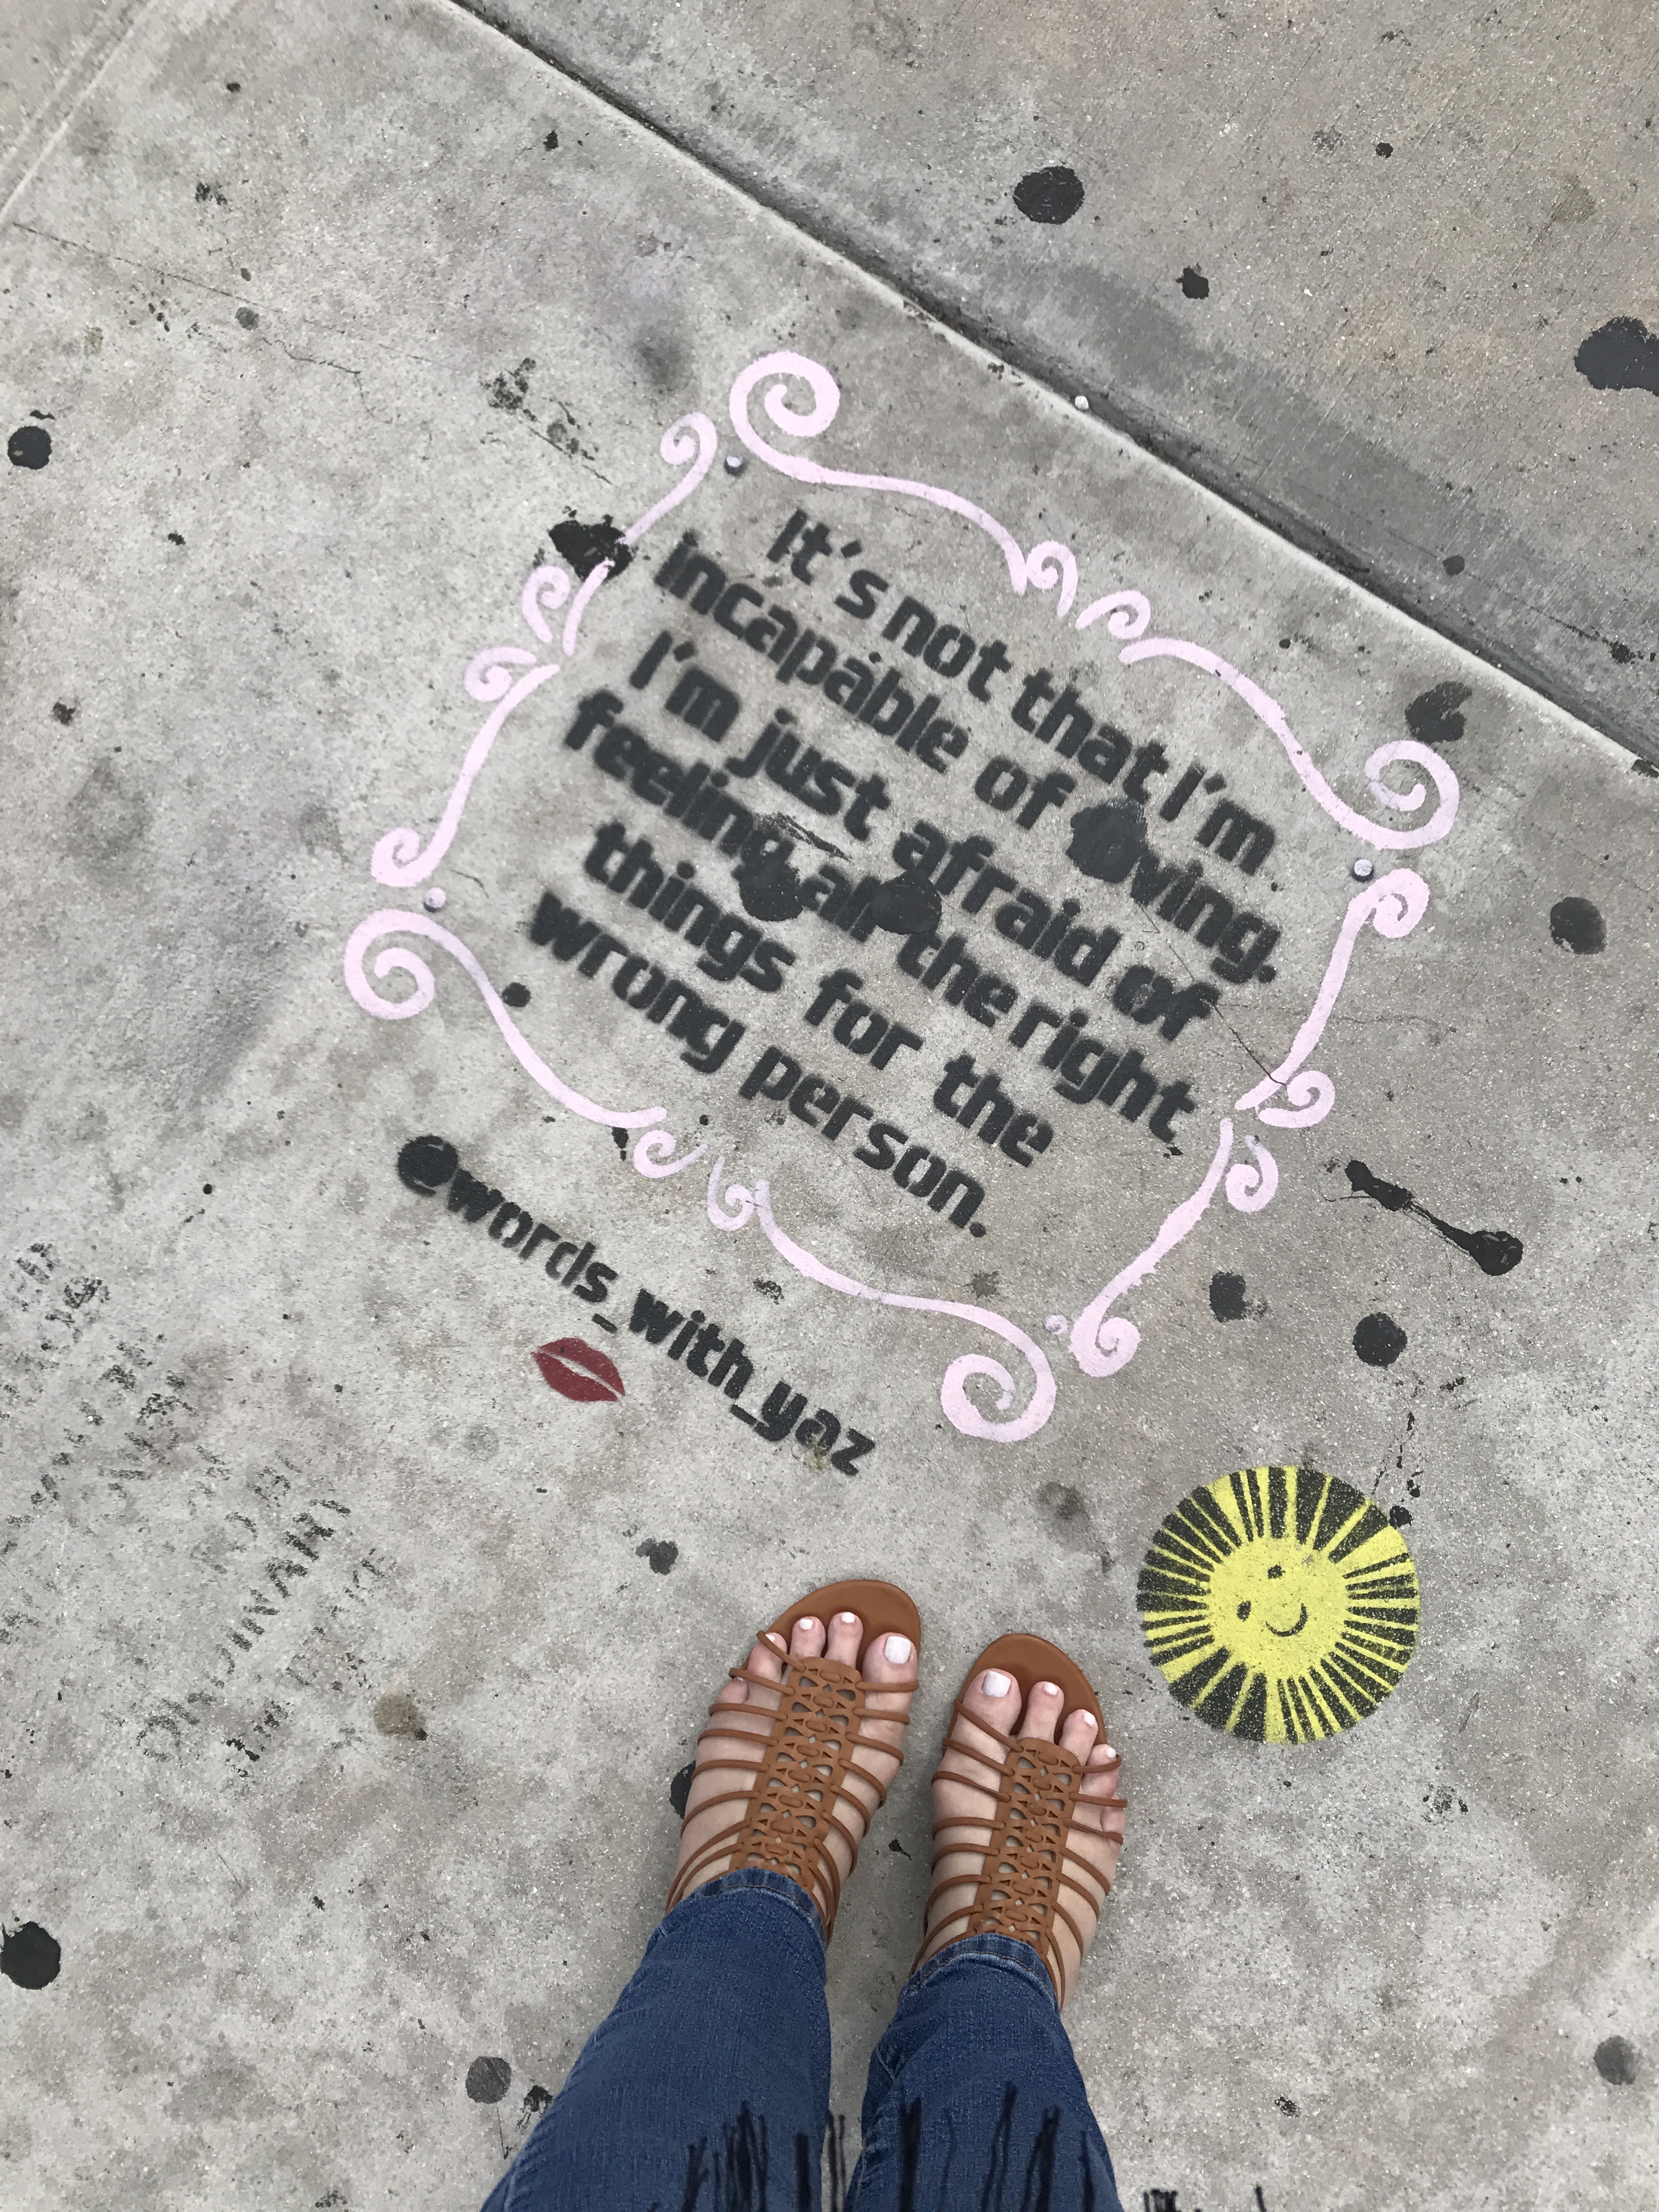 It's not that I'm
incapable of loving.
I'm just afraid of
feeling all the right
things for the
wrong person.
@words_with_yaz